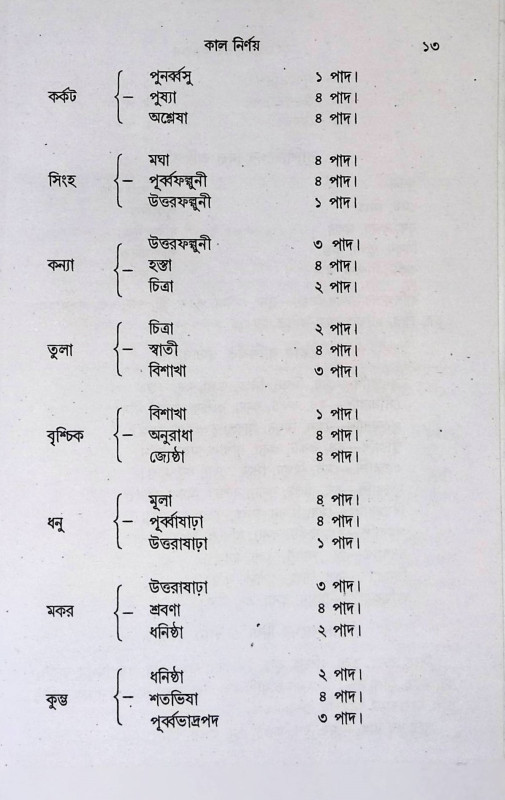 কাল নির্ণয় ১৩
পুনর্ব্বসু ১ পাদ।
কর্কট { — পুষ্যা ৪ পাদ।
অশ্লেষা ৪ পাদ।
মঘা ৪ পাদ।
সিংহ { — পূর্ব্বফল্গুনী ৪ পাদ।
উত্তরফল্গুনী ১ পাদ।
উত্তরফল্গুনী ৩ পাদ।
কন্যা { — হস্তা ৪ পাদ।
চিত্রা ২ পাদ।
চিত্রা ২ পাদ।
তুলা { — স্বাতী ৪ পাদ।
বিশাখা ৩ পাদ।
বিশাখা ১ পাদ।
বৃশ্চিক { — অনুরাধা ৪ পাদ।
জ্যেষ্ঠা ৪ পাদ।
মূলা ৪ পাদ।
ধনু { — পূর্ব্বাষাঢ়া ৪ পাদ।
উত্তরাষাঢ়া ১ পাদ।
উত্তরাষাঢ়া ৩ পাদ।
মকর { — শ্রবণা ৪ পাদ।
ধনিষ্ঠা ২ পাদ।
ধনিষ্ঠা ২ পাদ।
কুম্ভ { — শতভিষা ৪ পাদ।
পূর্ব্বভাদ্রপদ ৩ পাদ।